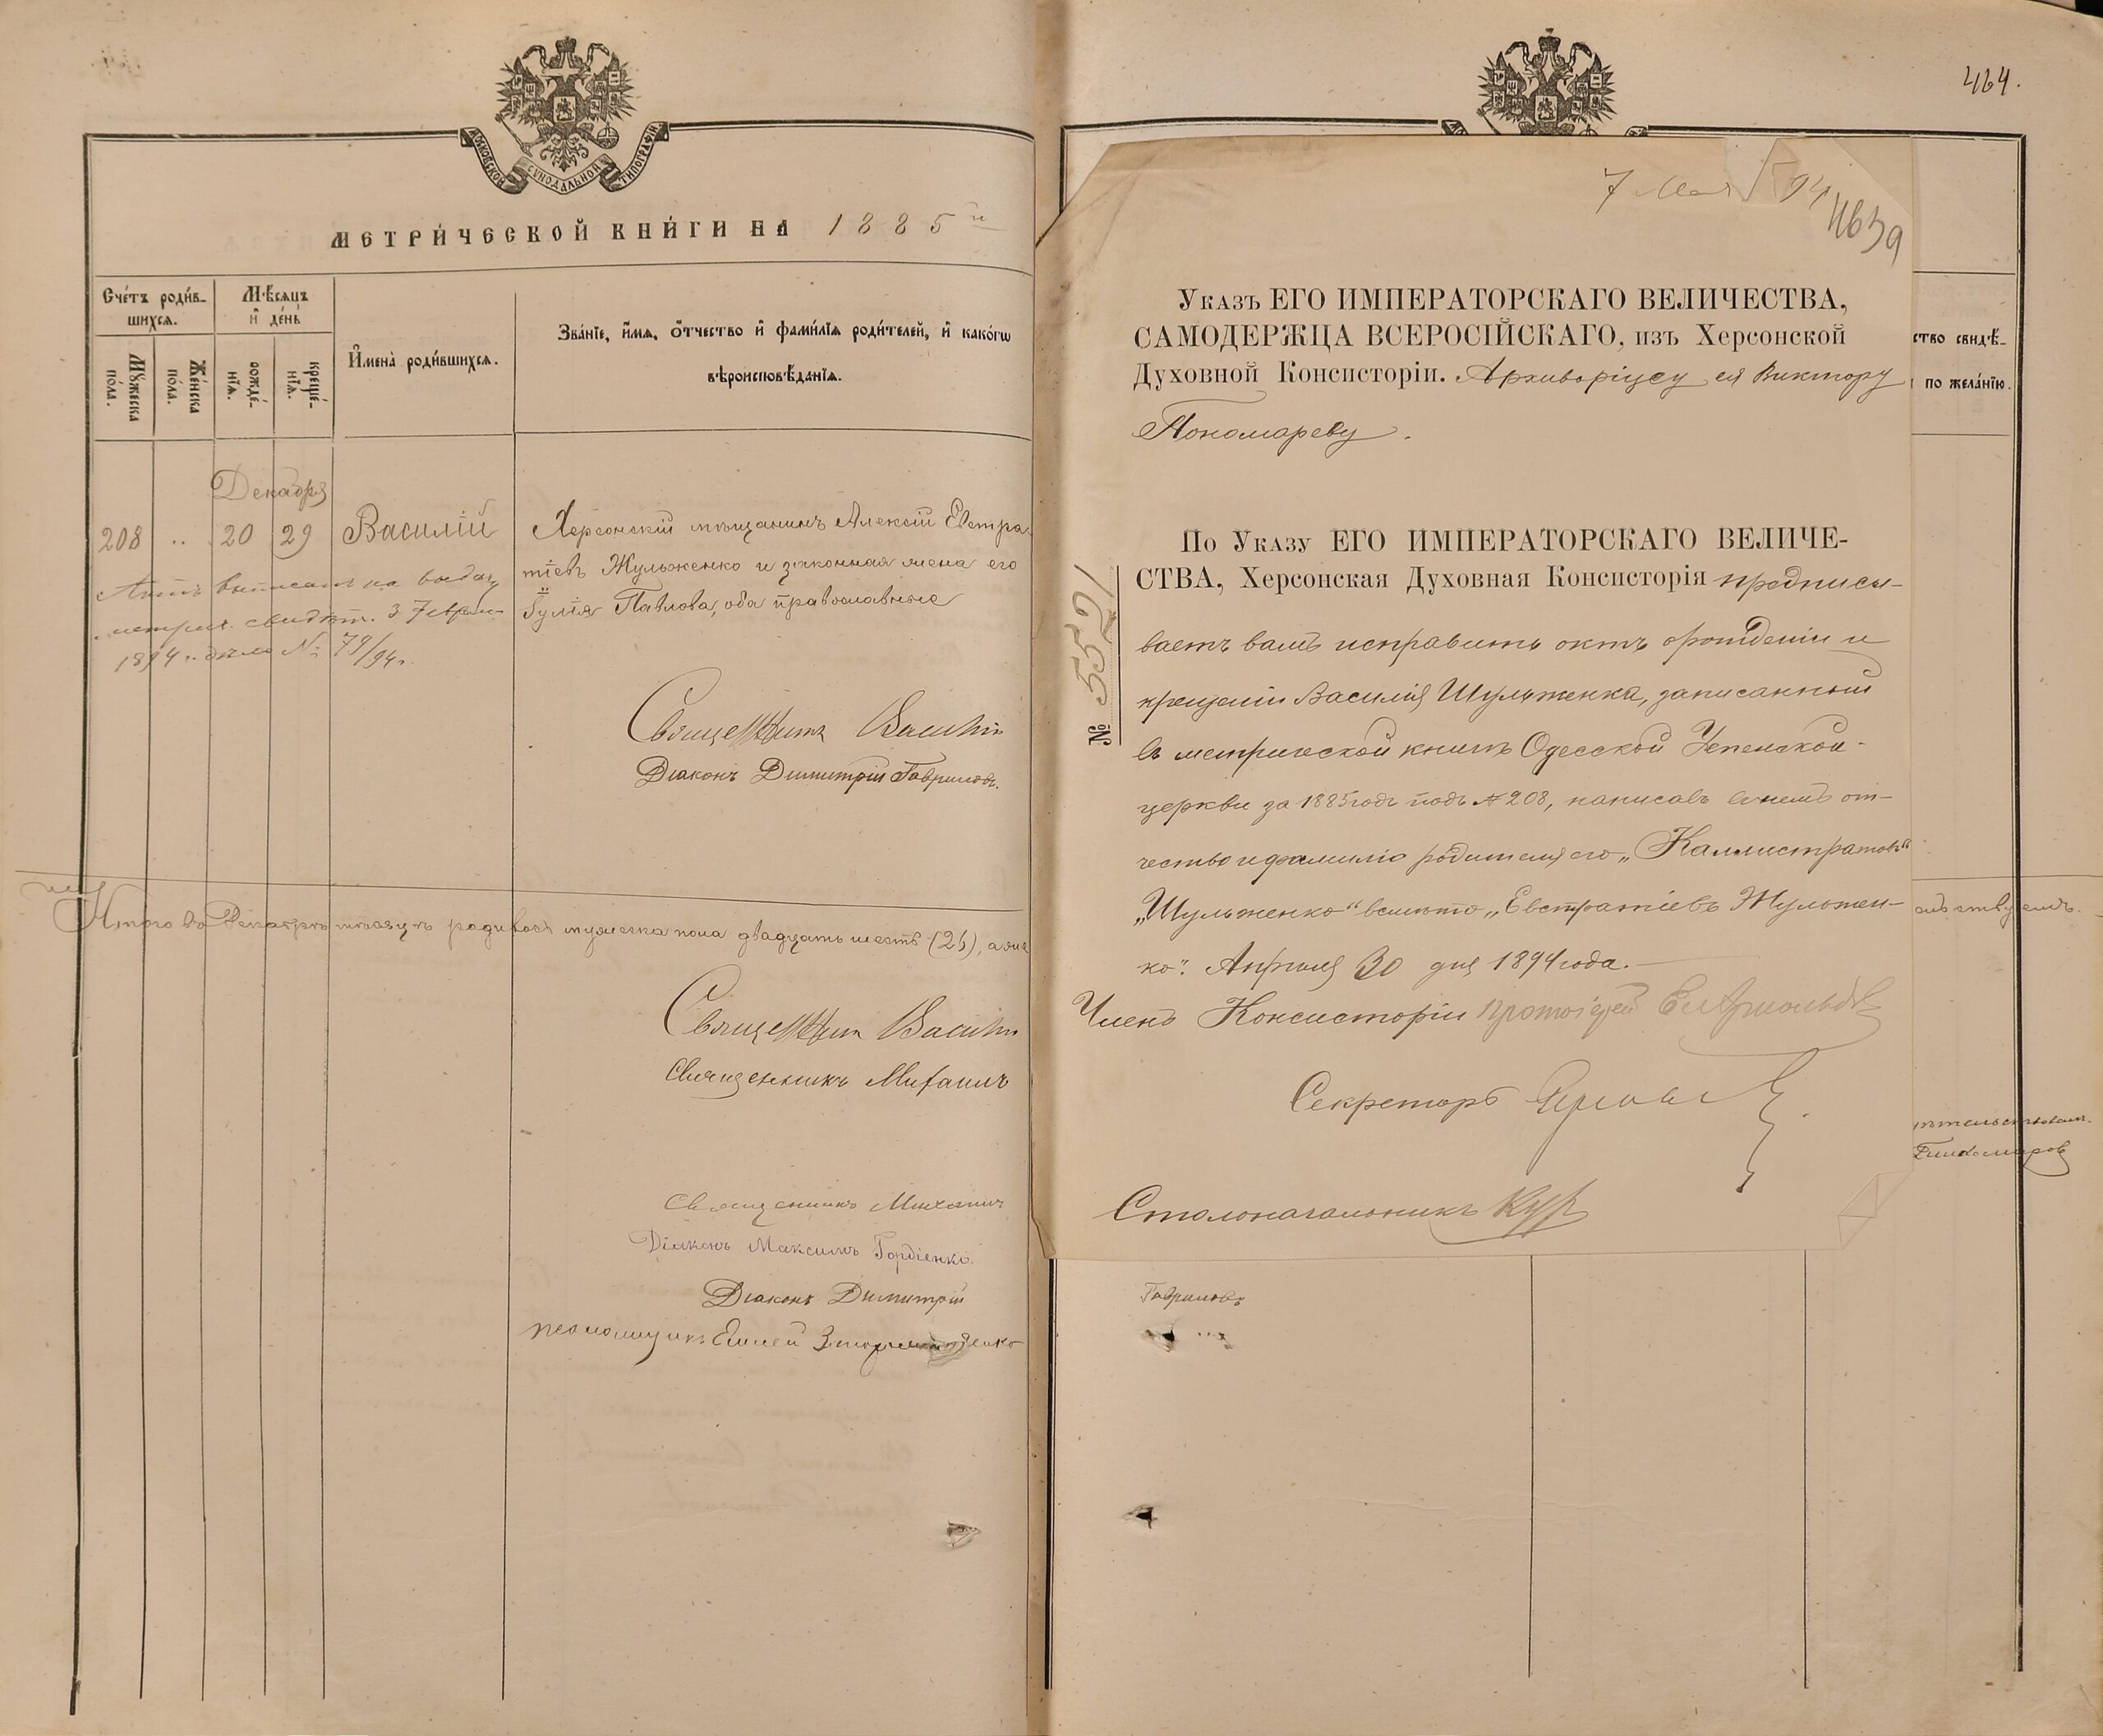 МОСКОВСКОЙ СѴНОДАЛЬНОЙ ТИПОГРАФІИ
МЕТРИ́ЧЕСКОЙ КНИ́ГИ НА 1885 й
Сче́тъ роди́в-
шихся.
Мѣ́сяцъ
и҆ де́нь
Мꙋ́жеска
по́ла.
Же́нска
по́ла.
рожде́-
нїѧ.
креще́-
нїѧ.
И҆мена̀ роди́вшихсѧ.
Зва́нїе, и҆́мѧ, ѻ҆́тчество и҆ фами́лїѧ роди́телей, и҆ како́гѡ
вѣроисповѣ́данїѧ.
Декабря
208 .. 20 29 Василій
Херсонскій мѣщанинъ Алексій Евстра-
тіевъ Жульженко и законная жена его
Іулія Павлова, оба православные
Актъ выписанъ на выдачу
метрич. свидѣт. 3 Феврал
1894 г. дѣло № 79/94 г.
Священникъ Василій
Діаконъ Димитрій Гавриловъ.
Итого въ Декабрѣ мѣсяцѣ родилось мужеска пола двадцать шесть (26), а жен
Священникъ Василій
Священникъ Михаилъ
Священникъ Михаилъ
Діаконъ Максимъ Гордіенко.
Діаконъ Димитрій
псаломщикъ
464.
7 Мая 94
4639
Указъ ЕГО ИМПЕРАТОРСКАГО ВЕЛИЧЕСТВА,
САМОДЕРЖЦА ВСЕРОСІЙСКАГО, изъ Херсонской
Духовной Консисторіи. Архиваріусу ея Виктору
Пономареву.
По Указу ЕГО ИМПЕРАТОРСКАГО ВЕЛИЧЕ-
СТВА, Херсонская Духовная Консисторія предписы-
ваетъ вамъ исправить актъ о рожденіи и
крещеніи Василія Шульженка, записанный
въ метрической книгѣ Одесской Успенской
церкви за 1885 годъ подъ № 208, написавъ въ немъ от-
чество и фамилію родителя его „Каллистратовъ
„Шульженко" вмѣсто „Евстратіевъ Жульжен-
ко". Апрѣля 30 дня 1894 года.
№
Членъ Консисторіи Протоіерей
Секретарь
Столоначальникъ
ство свидѣ́-
по жела́нїю.
Гавриловъ